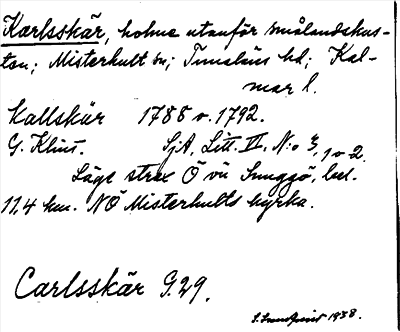 Karlsskär, holme utanför smålandskus-
ten; Misterhult sn; Tunaläns hd; Kal-
mar l.
Kallskär 1788 o. 1792.
G. Klint. SjA, Litt. II, N:o 3, 1 o 2.
Läge strax Ö om
11,4 km. NÖ Misterhults kyrka.
Carlsskär G.29.
1938.